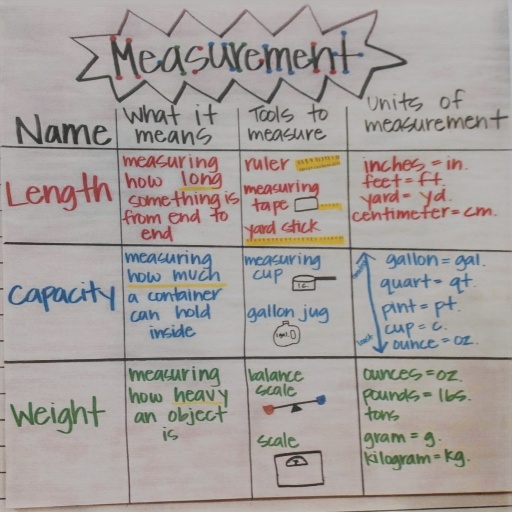 Measurement
Name
What it
means
Tools to
measure
Units of
measurement
Length
measuring
how long
something is
from end to
end
ruler
measuring
tape
yard stick
inches = in.
feet = ft.
yard = yd.
centimeter = cm.
Capacity
measuring
how much
a container
can hold
inside
measuring
cup
1c.
gallon jug
gallon = gal.
quart = qt.
pint = pt.
cup = c.
ounce = oz.
Weight
measuring
how heavy
an object
is
balance
scale
scale
ounces = oz.
pounds = lbs.
tons
gram = g.
kilogram = kg.